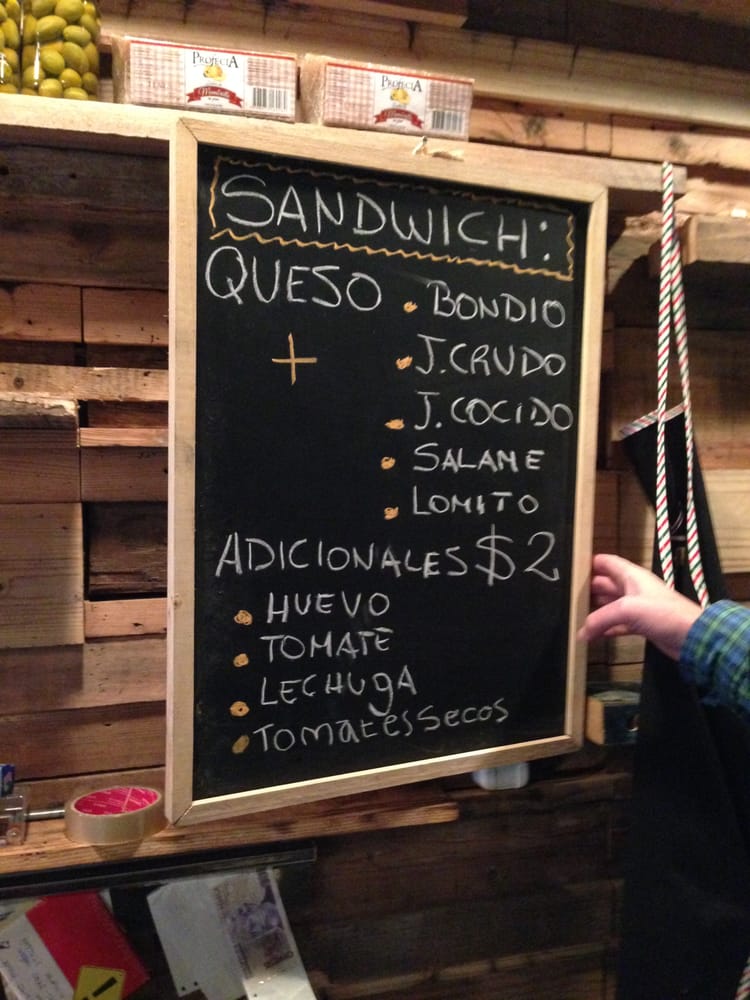 PROJECIA
Membrillo
PROJECIA
SANDWICH:
QUESO
+
• BONDIO
• J.CRUDO
• J.COCIDO
• SALAME
• LOMITO
ADICIONALES $2
• HUEVO
• TOMATE
• LECHUGA
• Tomates Secos